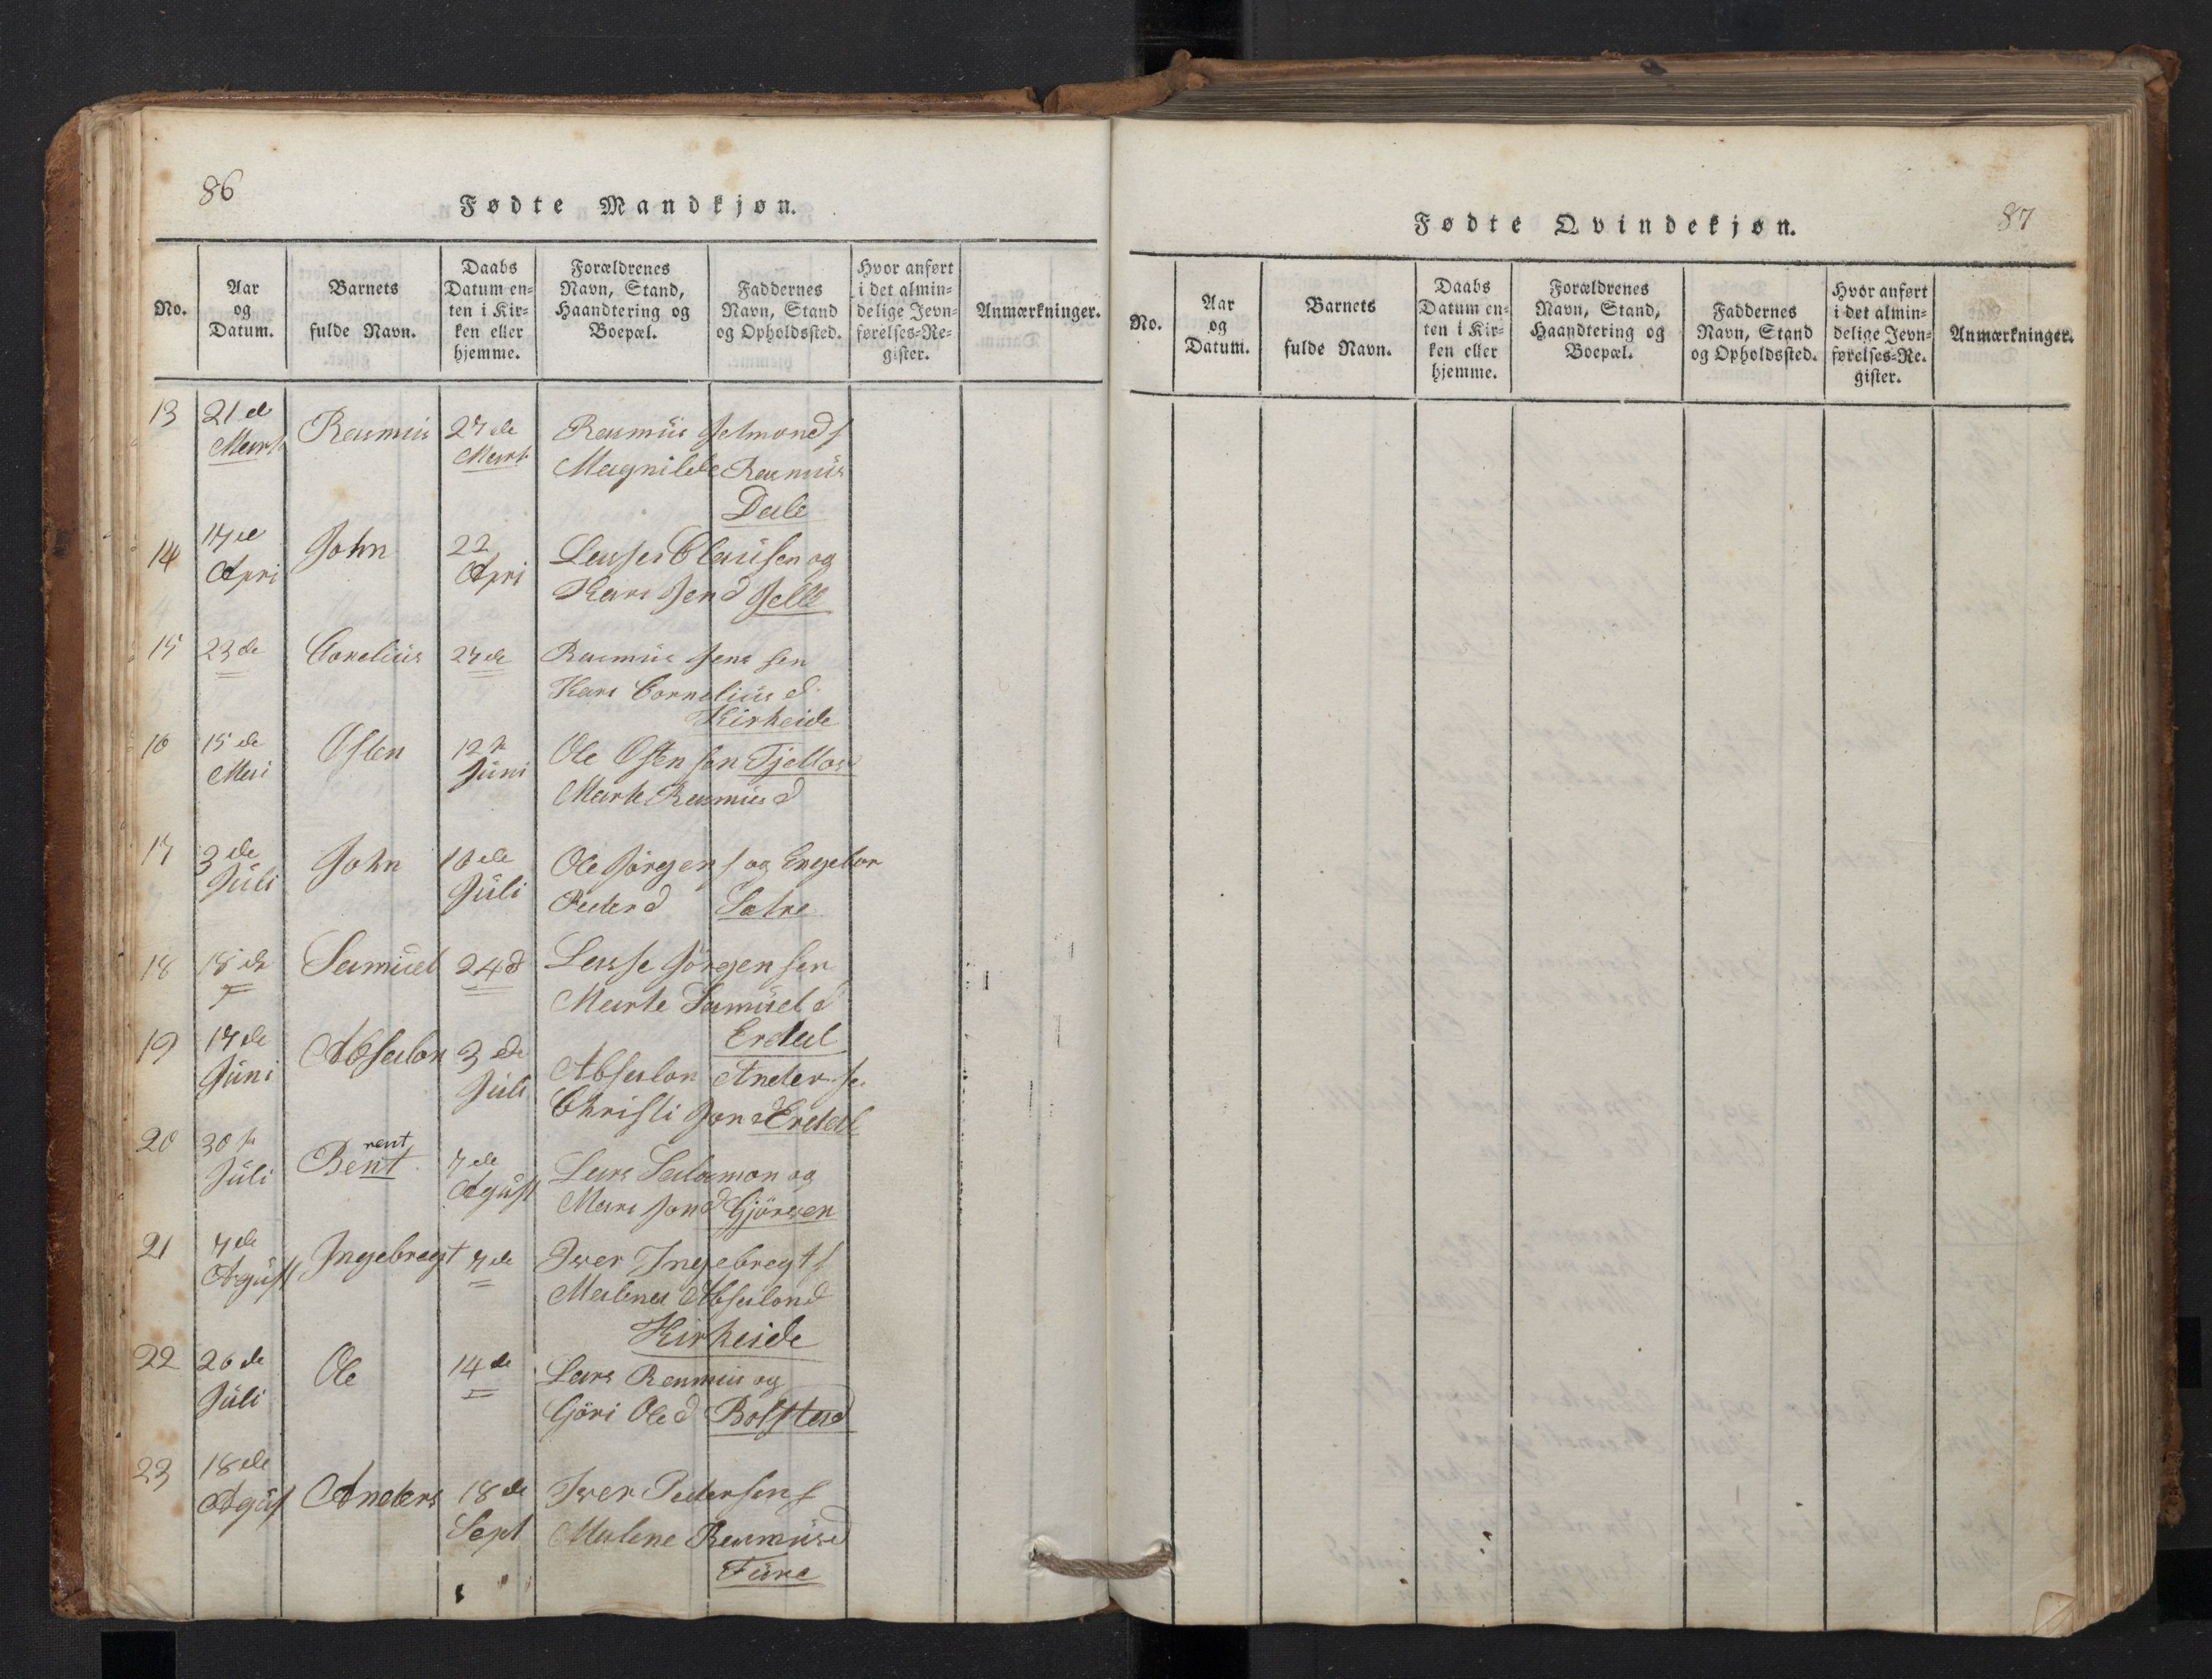 86
Fødte Mandkjøn.
No.
Aar
og
Datum.
Barnets
fulde Navn.
Daabs
Datum en-
ten i Kir-
ken eller
hjemme.
Forældrenes
Navn, Stand,
Haandtering og
Boepæl.
Faddernes
Navn, Stand
og Opholdssted.
Hvor anført
i det almin-
delige Jevn-
førelses-Re-
gister.
Anmærkninger.
13 21de Rasmus 27de Rasmus Salmonds
Mart Mart Magnilde Rasmus
Dale
14 17de John 22 Lasse Clausen og
Apri Apri Kari Jend Jelle
15 23de Cornelius 27de Rasmus Jens sen
Kari Cornelius d
Kirkeide
16 15de Osten 12te Ole Osten sen
Mai Juni Marte Rasmus d
17 3de John 10de Ole Jörgens og Engebor
Juli Juli Peder d Sætre
18 18de Samuel 24d Lasse Jörgen sen
Marte Samuel d
Erdal
19 17de Absalon 3de Absalon Anders
Juni Juli Christi Jon d Erdal
20 30te Bent rent 7de Lars Salamon og
Juli Agust Mari Jon d Gjörven
21 7de Ingebregt 7de Iver Ingebregts
Agust Malena Absalond
Kirkeide
22 26de Ole 14de Lars Rasmus og
Juli Göri Ole d Bolstad
23 18de Anders 18de Iver Pedersen
Agust Sept Malene Rasmusd
Fure
87
Fødte Qvindekjøn.
No.
Aar
og
Datum.
Barnets
fulde Navn.
Daabs
Datum en-
ten i Kir-
ken eller
hjemme.
Forældrenes
Navn, Stand,
Haandtering og
Boepæl.
Faddernes
Navn, Stand
og Opholdssted.
Hvor anført
i det almin-
delige Jevn-
førelses-Re-
gister.
Anmærkninger.